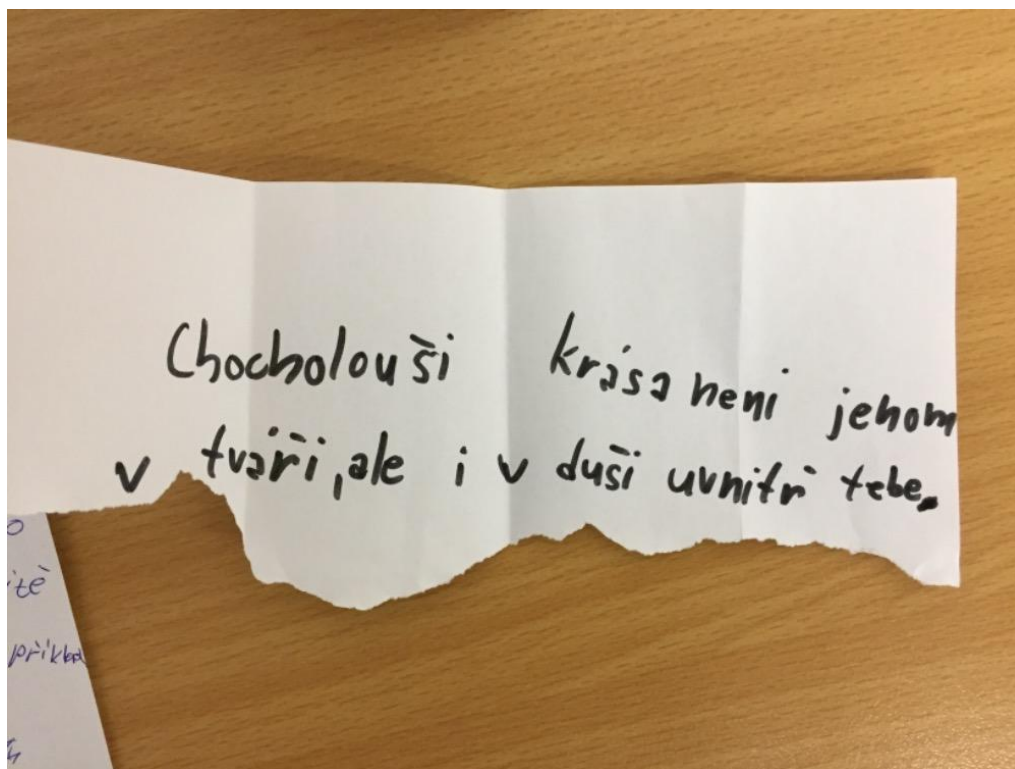 Chocholouši krása neni jenom
v tváři, ale i v duši uvnitř tebe.
příkla